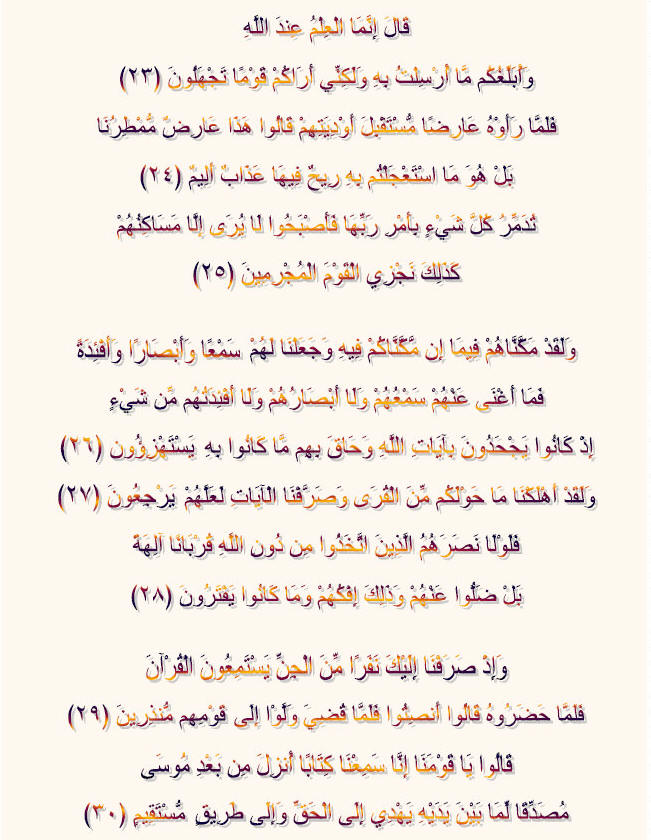 قَالَ إِنَّمَا الْعِلْمُ عِندَ اللَّهِ
وَأُبَلِّغُكُم مَّا أُرْسِلْتُ بِهِ وَلَكِنِّي أَرَاكُمْ قَوْمًا تَجْهَلُونَ (٢٣)
فَلَمَّا رَأَوْهُ عَارِضًا مُّسْتَقْبِلَ أَوْدِيَتِهِمْ قَالُوا هَذَا عَارِضٌ مُّمْطِرُنَا
بَلْ هُوَ مَا اسْتَعْجَلْتُم بِهِ رِيحٌ فِيهَا عَذَابٌ أَلِيمٌ (٢٤)
تُدَمِّرُ كُلَّ شَيْءٍ بِأَمْرِ رَبِّهَا فَأَصْبَحُوا لَا يُرَى إِلَّا مَسَاكِنُهُمْ
كَذَلِكَ نَجْزِي الْقَوْمَ الْمُجْرِمِينَ (٢٥)
وَلَقَدْ مَكَّنَّاهُمْ فِيمَا إِن مَّكَّنَّاكُمْ فِيهِ وَجَعَلْنَا لَهُمْ سَمْعًا وَأَبْصَارًا وَأَفْئِدَةً
فَمَا أَغْنَى عَنْهُمْ سَمْعُهُمْ وَلَا أَبْصَارُهُمْ وَلَا أَفْئِدَتُهُم مِّن شَيْءٍ
إِذْ كَانُوا يَجْحَدُونَ بِآيَاتِ اللَّهِ وَحَاقَ بِهِم مَّا كَانُوا بِهِ يَسْتَهْزِؤُون (٢٦)
وَلَقَدْ أَهْلَكْنَا مَا حَوْلَكُم مِّنَ الْقُرَى وَصَرَّفْنَا الْآيَاتِ لَعَلَّهُمْ يَرْجِعُونَ (٢٧)
فَلَوْلَا نَصَرَهُمُ الَّذِينَ اتَّخَذُوا مِن دُونِ اللَّهِ قُرْبَانًا آلِهَةً
بَلْ ضَلُّوا عَنْهُمْ وَذَلِكَ إِفْكُهُمْ وَمَا كَانُوا يَفْتَرُونَ (٢٨)
وَإِذْ صَرَفْنَا إِلَيْكَ نَفَرًا مِّنَ الْجِنِّ يَسْتَمِعُونَ الْقُرْآنَ
فَلَمَّا حَضَرُوهُ قَالُوا أَنصِتُوا فَلَمَّا قُضِيَ وَلَّوْا إِلَى قَوْمِهِم مُّنذِرِينَ (٢٩)
قَالُوا يَا قَوْمَنَا إِنَّا سَمِعْنَا كِتَابًا أُنزِلَ مِن بَعْدِ مُوسَى
مُصَدِّقًا لِّمَا بَيْنَ يَدَيْهِ يَهْدِي إِلَى الْحَقِّ وَإِلَى طَرِيقٍ مُّسْتَقِيمٍ (٣٠)